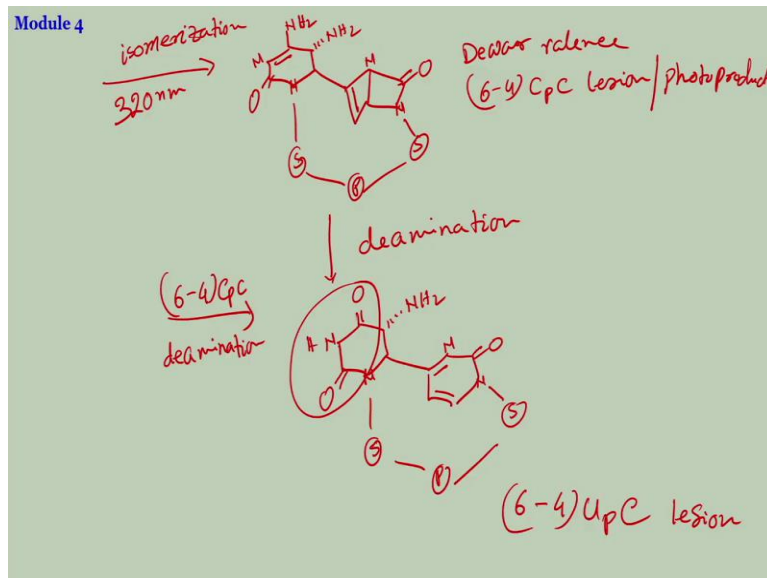 Module 4
isomerization
320nm
NH2
NH2
N
N
O
N
O
N
Dewar valence
(6-4) CpC lesion/photoproduct
S
P
S
deamination
(6-4)CpC
deamination
O
NH2
H N
O
N
N
O
N
S
P
S
(6-4) UpC lesion